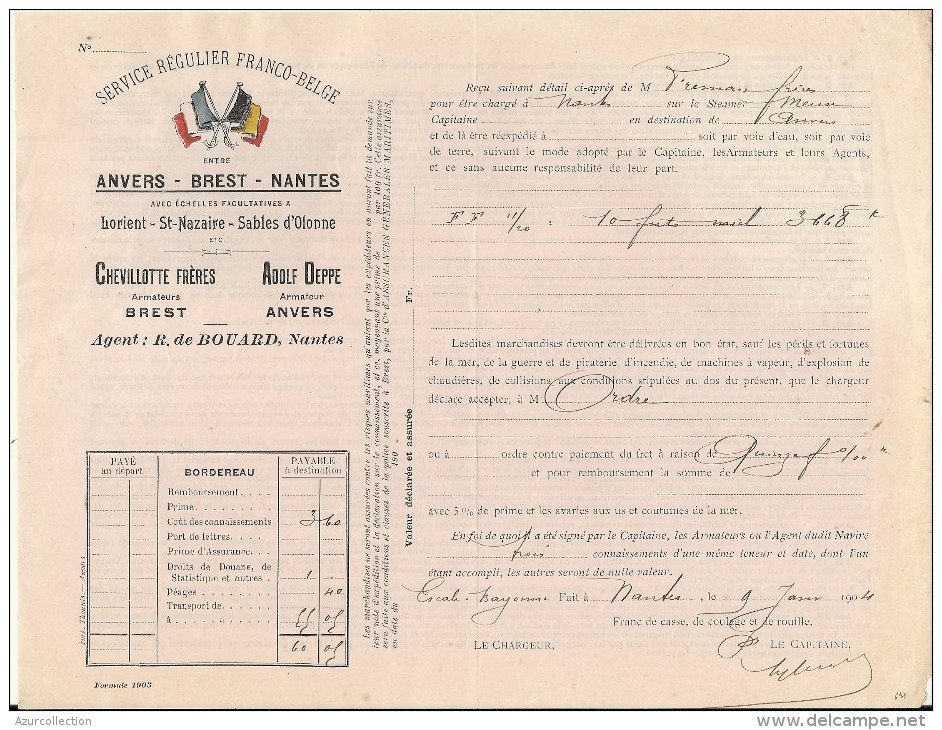 No
SERVICE RÉGULIER FRANCO-BELGE
ENTRE
ANVERS - BREST - NANTES
AVEC ÉCHELLES FACULTATIVES A
Lorient - St-Nazaire - Sables d'Olonne
ETC
CHEVILLOTTE FRÈRES
Armateurs
BREST
ADOLF DEPPE
Armateur
ANVERS
Agent : R. de BOUARD, Nantes
PAYÉ au départ
BORDEREAU
PAYABLE à destination
Remboursement
Prime
Coût des connaissements 3 60
Port de lettres
Prime d'Assurance
Droits de Douane, de
Statistique et autres 1
Péages 40
Transport de
à 55 05
60 05
Formule 1903
Les marchandises ne seront assurées contre les risques maritimes qu'autant que les expéditeurs en auront fait la demande sur
leur note d'expédition et la déclaration sur le connaissement, et ce, moyennant une prime de par 100 fr. Cette assurance
sera faite aux conditions et clauses de la police souscrite à Brest, par la Cie d'ASSURANCES GÉNÉRALES MARITIMES,
en date du 190
Valeur déclarée et assurée Fr.
Reçu suivant détail ci-après de M frères
pour être chargé à Nantes sur le Steamer Meuse
Capitaine en destination de Anvers
et de là être réexpédié à soit par voie d'eau, soit par voie
de terre, suivant le mode adopté par le Capitaine, les Armateurs et leurs Agents,
et ce sans aucune responsabilité de leur part.
F F 11/20 : 10 futs miel 3668 k
Lesdites marchandises devront être délivrées en bon état, sauf les périls et fortunes
de la mer, de la guerre et de piraterie, d'incendie, de machines à vapeur, d'explosion de
chaudières, de collisions aux conditions stipulées au dos du présent, que le chargeur
déclare accepter, à M Ordre
ou à ordre contre paiement du fret à raison de Quinze f 0/00 k
et pour remboursement la somme de
avec 5 % de prime et les avaries aux us et coutumes de la mer.
En foi de quoi il a été signé par le Capitaine, les Armateurs ou l'Agent dudit Navire
trois connaissements d'une même teneur et date, dont l'un
étant accompli, les autres seront de nulle valeur.
Escale Bayonne Fait à Nantes le 9 Janv 1904
Franc de casse, de coulage et de rouille.
LE CHARGEUR,
LE CAPITAINE,
Azurcollection
www.delcampe.net